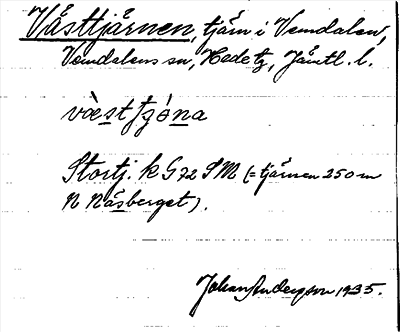 Västtjärnen, tjärn i Vemdalen,
Vemdalens sn, Hede tg, Jämtl. l.
Stortj. k G 72 SM (= tjärnen 250 m
N Näsberget).
Johan Anderson 1935.